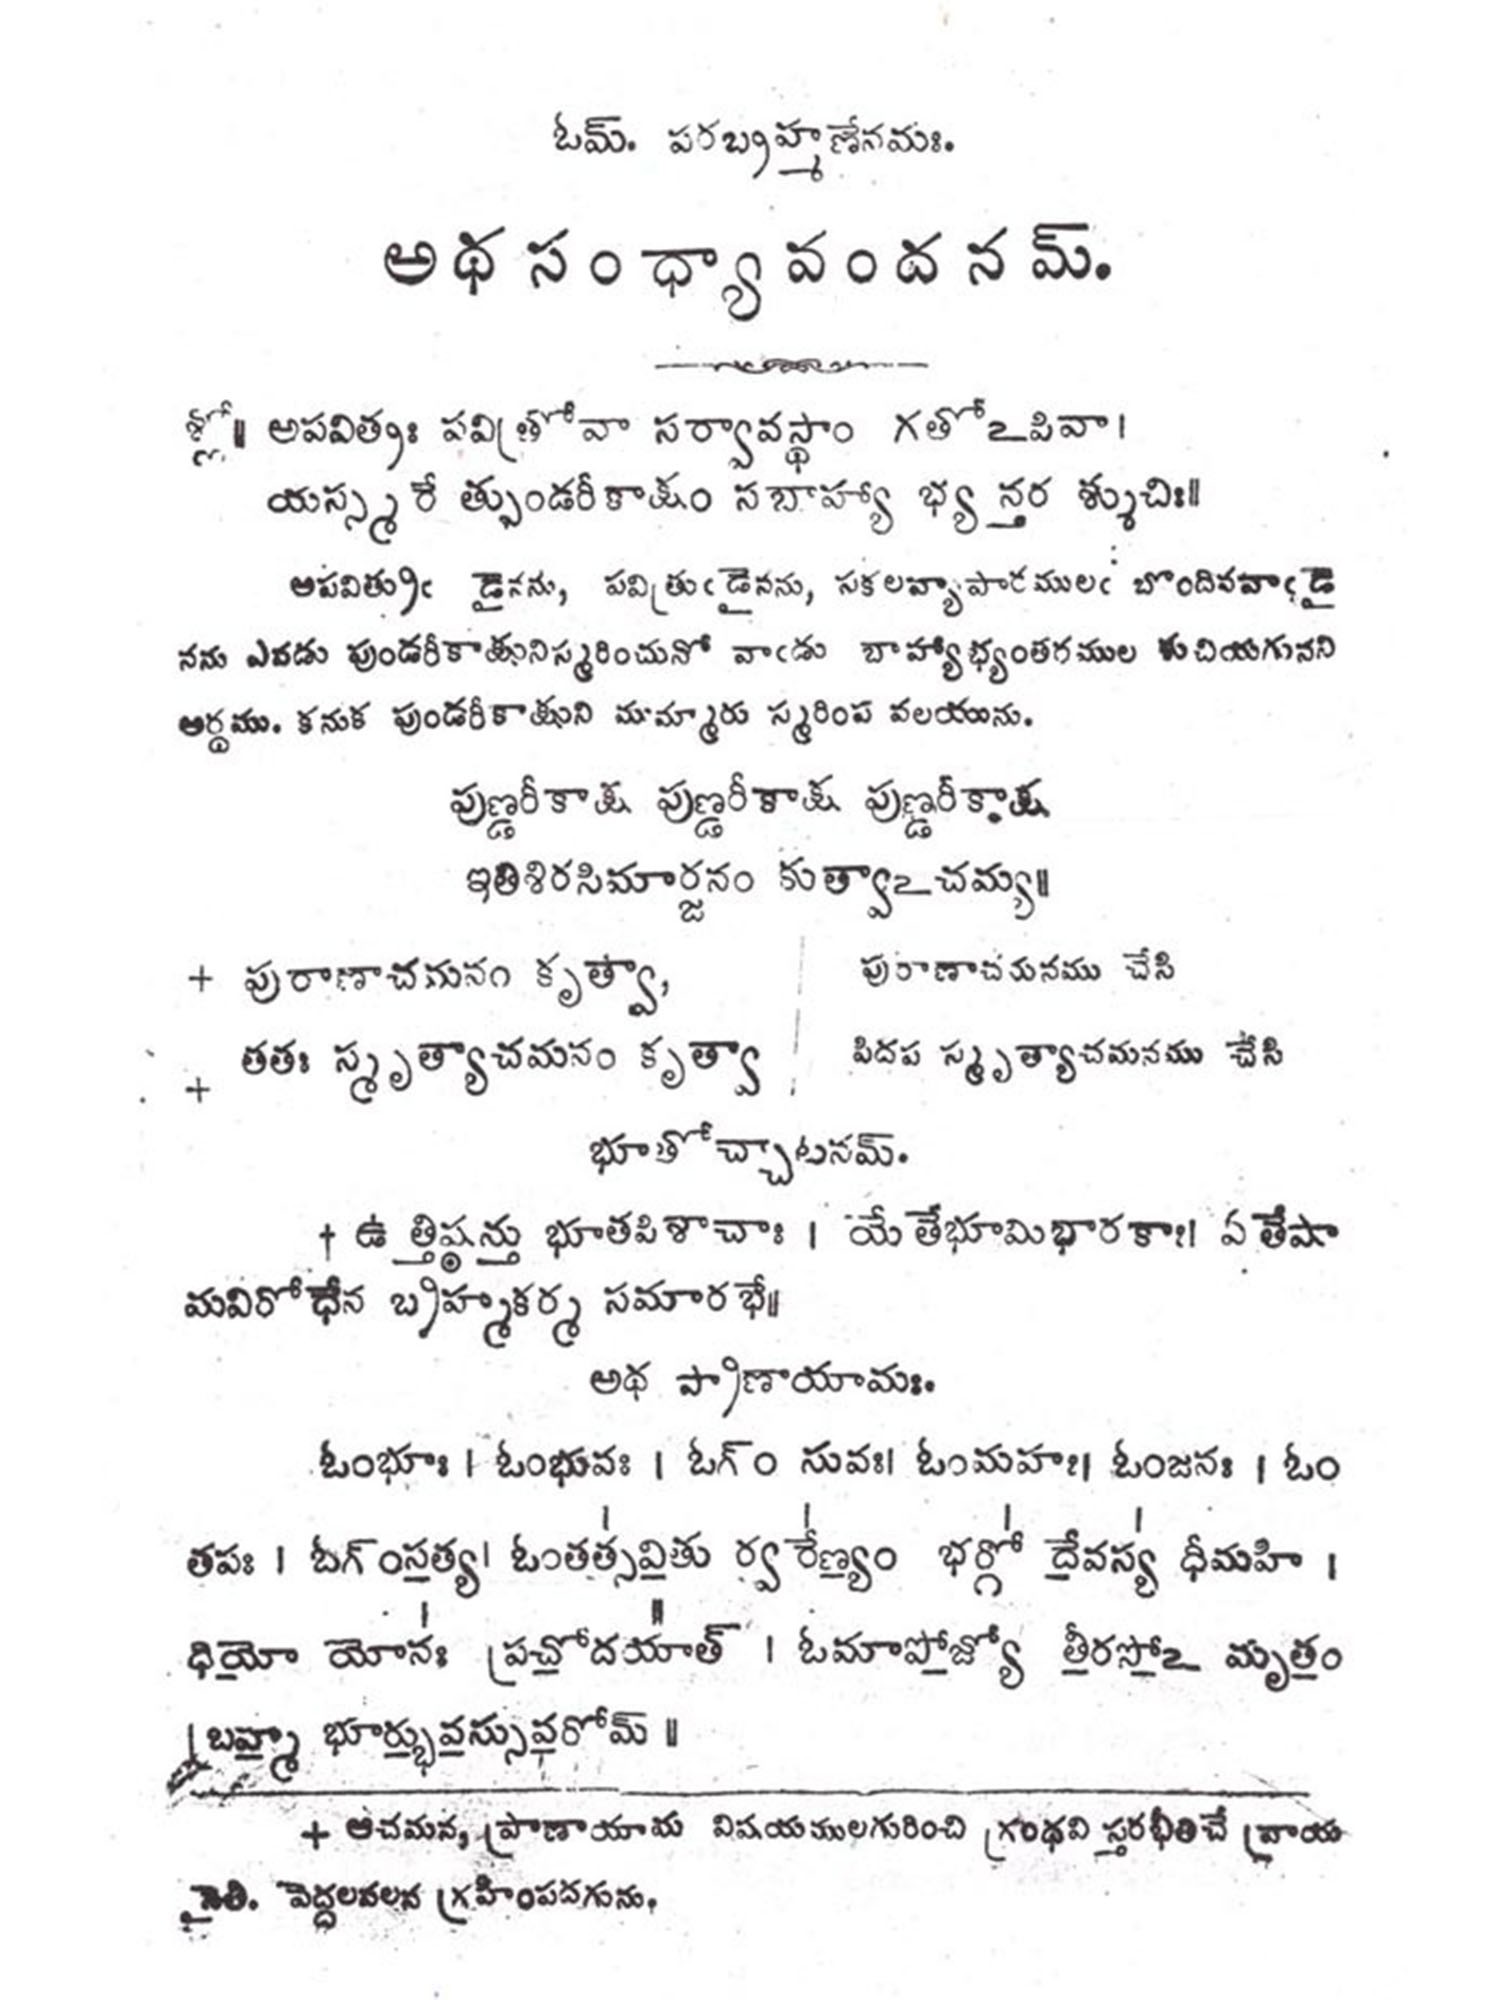 ఓమ్. పరబ్రహ్మణేనమః.
అథసంధ్యావందనమ్.
శ్లో॥ అపవిత్రః పవిత్రోవా సర్వావస్థాం గతోఽపివా।
యస్స్మరే త్పుండరీకాక్షం సబాహ్యా భ్య న్తర శ్శుచిః॥
అపవిత్రుఁ డైనను, పవిత్రుఁడైనను, సకలవ్యాపారములఁ బొందినవాఁడై
నను ఎవడు పుండరీకాక్షునిస్మరించునో వాఁడు బాహ్యాభ్యంతరముల శుచియగునని
అర్థము. కనుక పుండరీకాక్షుని ముమ్మారు స్మరింప వలయును.
పుణ్డరీకాక్ష పుణ్డరీకాక్ష పుణ్డరీకాక్ష
ఇతిశిరసిమార్జనం కుత్వాఽచమ్య॥
+ పురాణాచమనం కృత్వా, పురాణాచమనము చేసి
+ తతః స్మృత్యాచమనం కృత్వా పిదప స్మృత్యాచమనము చేసి
భూతోచ్చాటనమ్.
† ఉ త్తిష్ఠన్తు భూతపిశాచాః । యేతేభూమిభారకాః। ఏ తేషా
మవిరోధేన బ్రహ్మకర్మ సమారభే॥
అథ ప్రాణాయామః.
ఓంభూః । ఓంభువః । ఓగ్ం సువః। ఓంమహః। ఓంజనః । ఓం
తపః । ఓగ్ంస॒త్య। ఓంతత్స॑వి॒తు ర్వ రే॑ణ్య॒ం భర్గో॑ దే॒వస్య॑ ధీమహి ।
ధియో॒ యోనః॑ ప్రచో॒దయా᳚త్ । ఓమాపో॒జ్యో తీ॒రసో॒ఽ మృత॒ం
బ్రహ్మ॒ భూర్భు॒వ॒స్సువ॒రోమ్ ॥
+ ఆచమన, ప్రాణాయామ విషయములగురించి గ్రంథవి స్తరభీతిచే వ్రాయ
నైతి. పెద్దలవలన గ్రహింపదగును.